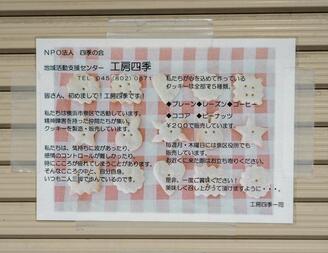 NPO法人 四季の会
地域活動支援センター 工房四季
TEL 045(802)0871
皆さん、初めまして！工房四季です！
私たちは横浜市泉区で活動しています。
精神障害を持った仲間たちが集い
クッキーを製造・販売しています。
私たちは、気持ちに波があったり、
感情のコントロールが難しかったり、
時に心が疲れてしまうことがあります。
そんなこころの中と、自分自身。
いつも二人三脚で歩んでいるのです。
私たちが心を込めて作っている
クッキーは全部で5種類。
◆プレーン◆レーズン◆コーヒー
◆ココア ◆ピーナッツ
¥200で販売しています。
毎週月・木曜日には泉区役所でも
販売しています。
お近くに来た際はお立ち寄りください。
是非、一度ご賞味ください！
美味しく召し上がって頂けますように・・・。
工房四季一同